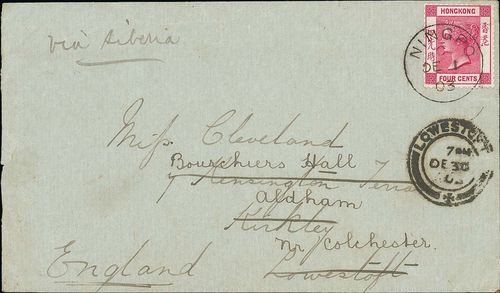 via Siberia
HONGKONG
FOUR CENTS
NINGPO
DE 1
03
LOWESTOFT
7 PM
DE 30
03
Miss Cleveland
Bourchiers Hall
7 Kensington Terrace
Aldham
Kirkley
nr Colchester.
Lowestoft
England